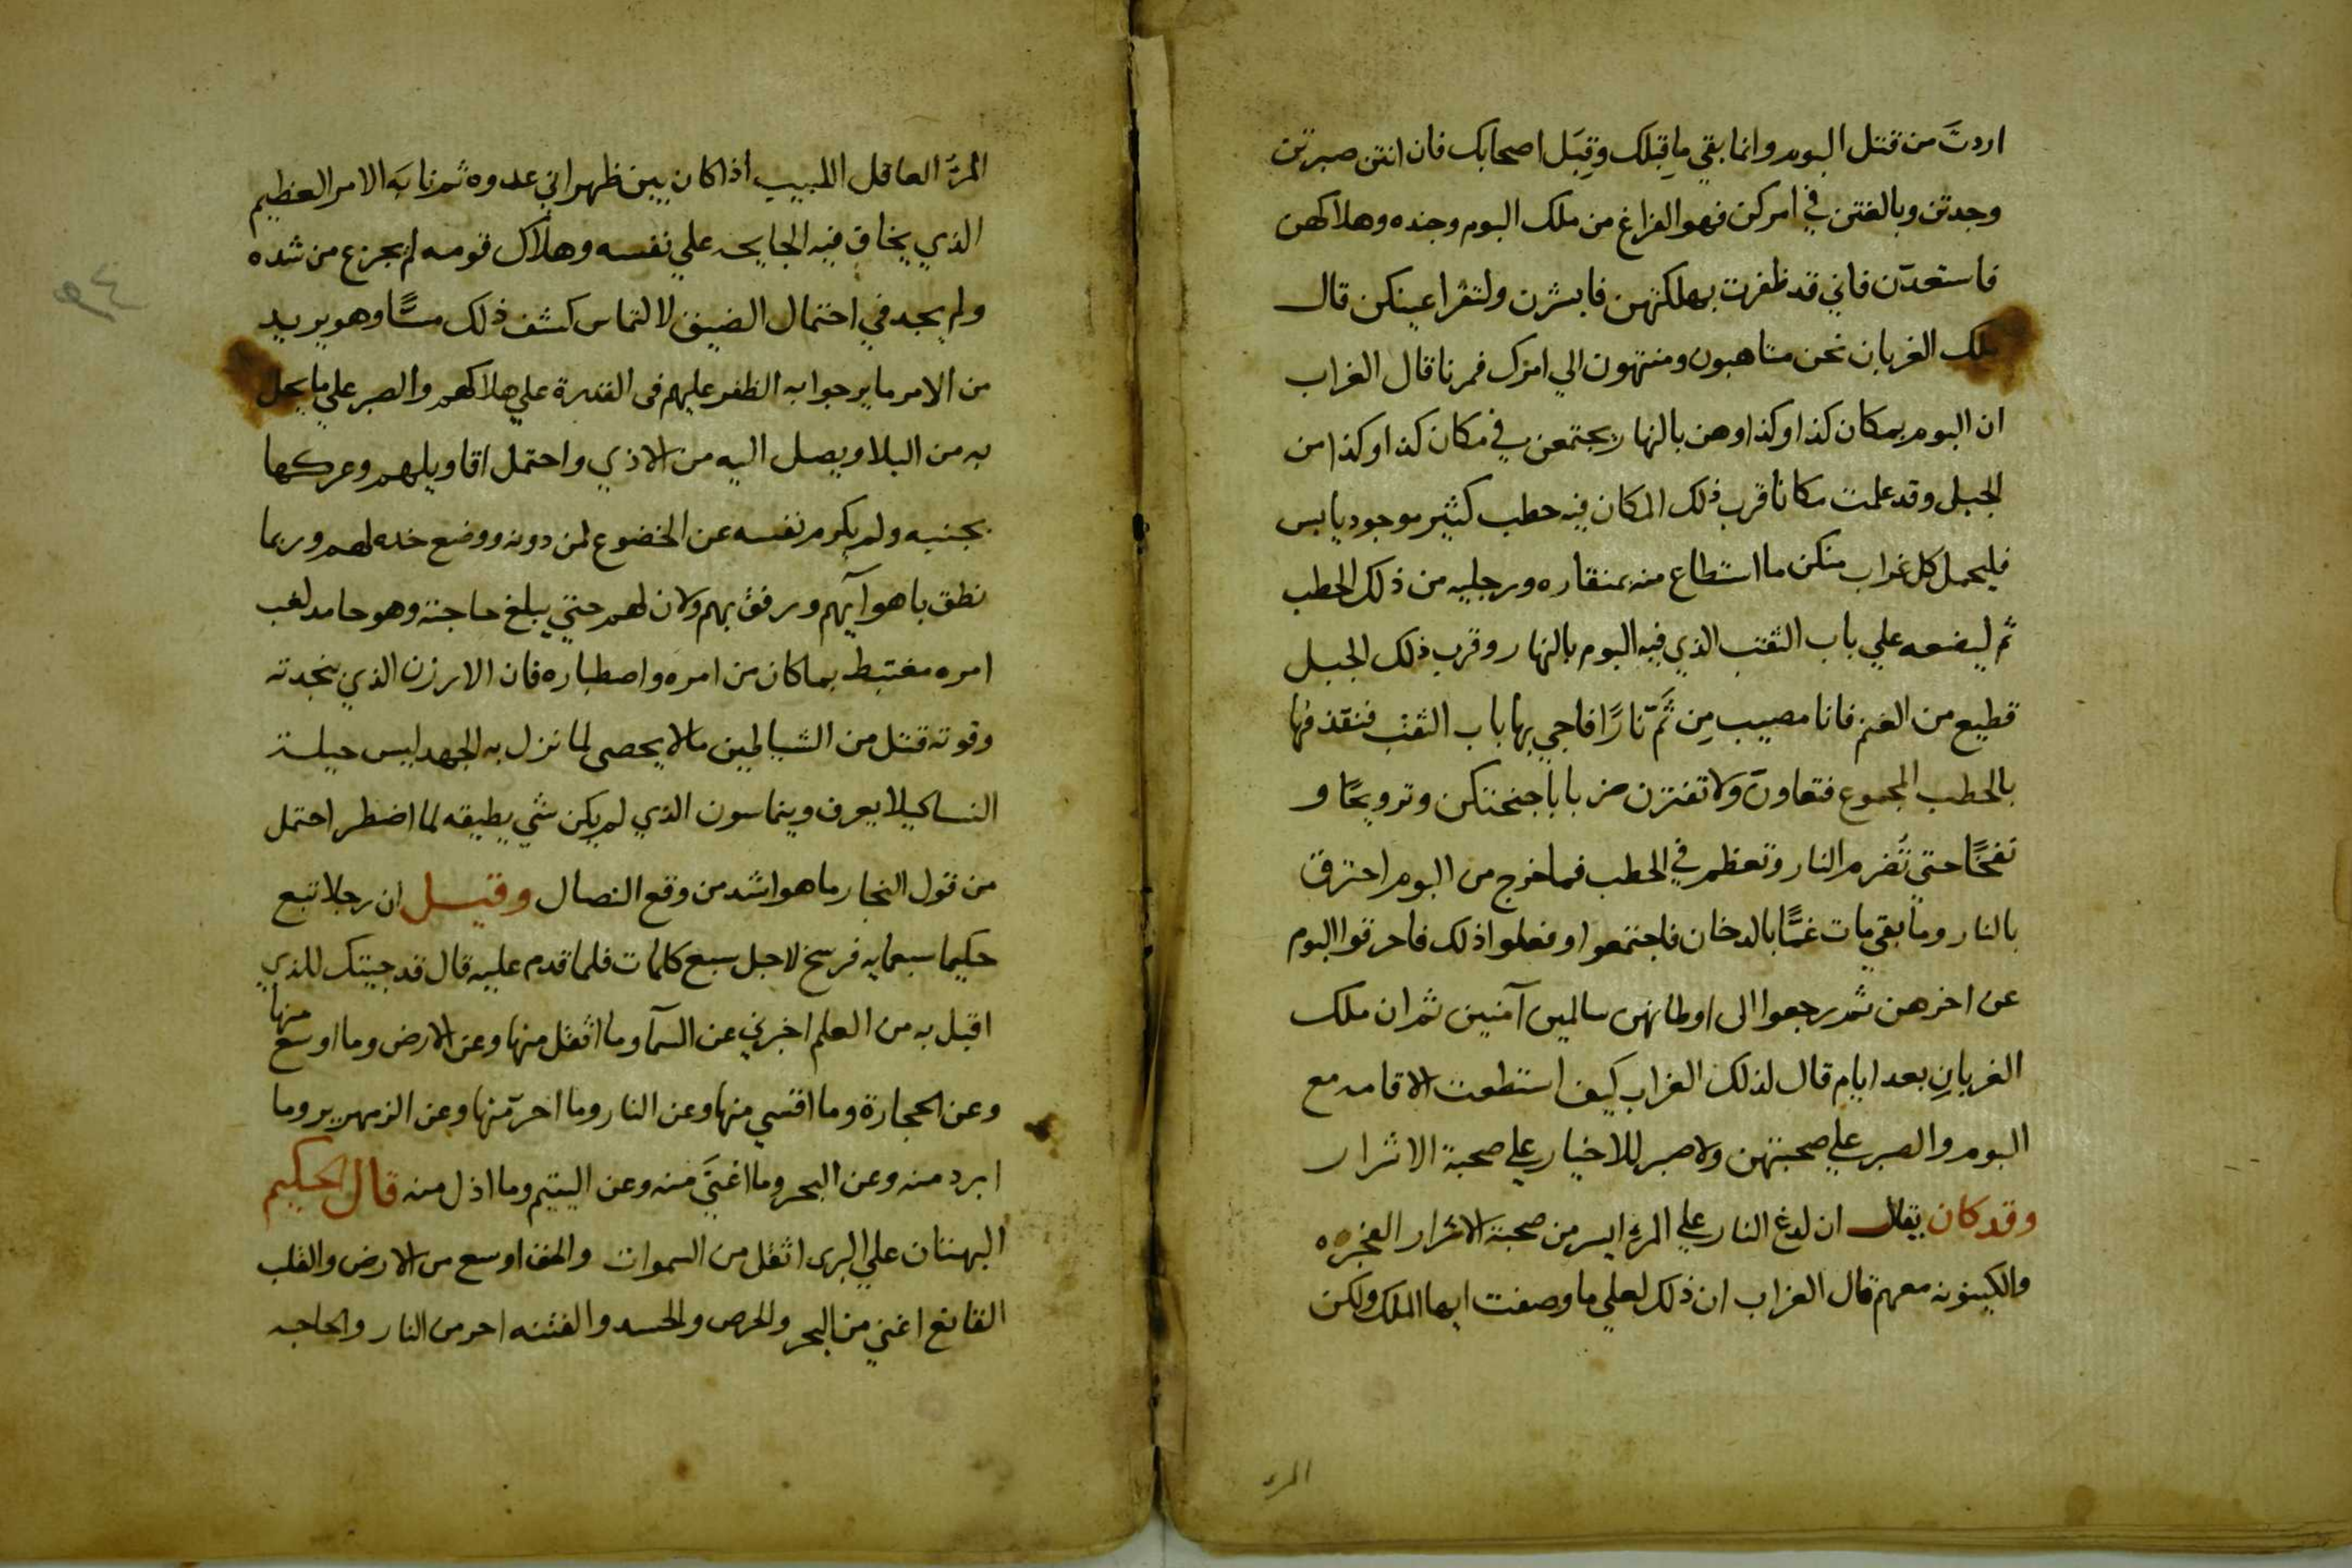 اردتَ من قتل البوم وانما بقي ما قِبلك وقِبَل اصحابك فان انتن صبرتن
وجدتن وبالغتن في امركن فهو الفراغ من ملك البوم وجنده وهلاكهن
فاستعدّن فاني قد ظفرت بهلكتهن فابشرن ولتقرا عينكن قال
ملك الغربان نحن متاهبون ومنتهون الي امرك فمرنا قال الغراب
ان البوم بمكان كذا وكذا وهن بالنهار يجتمعن في مكان كذا وكذا من
الجبل وقد علمت مكانا قرب ذلك المكان فيه حطب كثير موجود يابس
فليحمل كل غراب منكن ما استطاع منه بمنقاره ورجليه من ذلك الحطب
ثم ليضعه علي باب الثقب الذي فيه البوم بالنهار وقرب ذلك الجبل
قطيع من الغنم فانا مصيب مِن ثَمّ نارًا فاجي بها باب الثقب فنقذفها
بالحطب المجموع فتعاونّ ولا تفترن ضربا باجنحتكن وترويحًا و
نفخًا حتي تُضرم النار وتعظم في الحطب فما خرج من البوم احترق
بالنار وما بقي مات غمًّا بالدخان فاجتمعوا وفعلوا ذلك فاحرقوا البوم
عن اخرهن ثم رجعوا الى اوطانهن سالمين آمنين ثم ان ملك
الغربانِ بعد ايام قال لذلك الغراب كيف استطعت الاقامه مع
البوم والصبر علي صحبتهن ولا صبر للاخيار علي صحبة الاشرار
وقد كان يقال ان لدغ النار علي المرء ايسر من صحبة الاشرار الفجره
والكينونه معهم قال الغراب ان ذلك لعلي ما وصفت ايها الملك ولكن
المرء
المرءُ العاقل اللبيب اذا كان بين ظهراني عدوه ثم نابَه الامر العظيم
الذي يخاف فيه الجايحه علي نفسه وهلاك قومه لم يجزع من شده
ولم يجد في احتمال الضيق لالتماس كشف ذلك مسًّا وهو يريد
من الامر ما يرجوا به الظفر عليهم فى القدرة علي هلاكهم والصبر علي ما يحل
به من البلا ويصل اليه من الاذي واحتمل اقاويلهم وعركها
بجنبه ولم يكرم نفسه عن الخضوع لمن دونه ووضع خده لهم وربما
نطق باهوآيهم ورفق بهم ولان لهم حتي يبلغ حاجته وهو حامد لغب
امره مغتبط بما كان من امره واصطباره فان الارزن الذي بنجدته
وقوته قتل من الشياطين ما لا يحصى لما نزل به الجهد لبس حيلة
النسا كيلا يعرف وينماسون الذي لم يكن شي يطيقه لما اضطر احتمل
من قول النجار ما هو اشد من وقع النصال وقيل ان رجلا تبع
حكيما سبعمايه فرسخ لاجل سبع كلمات فلما قدم عليه قال قد جيتك للذي
اقبل به من العلم اخبرني عن السمآ وما اثقل منها وعن الارض وما اوسع منها
وعن الحجارة وما اقسي منها وعن النار وما احرّ منها وعن الزمهرير وما
ابرد منه وعن البحر وما اغنَي منه وعن اليتيم وما اذل منه قال الحكيم
البهتان علي البرى اثقل من السموات والحق اوسع من الارض والقلب
القانع اغني من البحر والحرص والحسد والفتنه احر من النار والحاجه